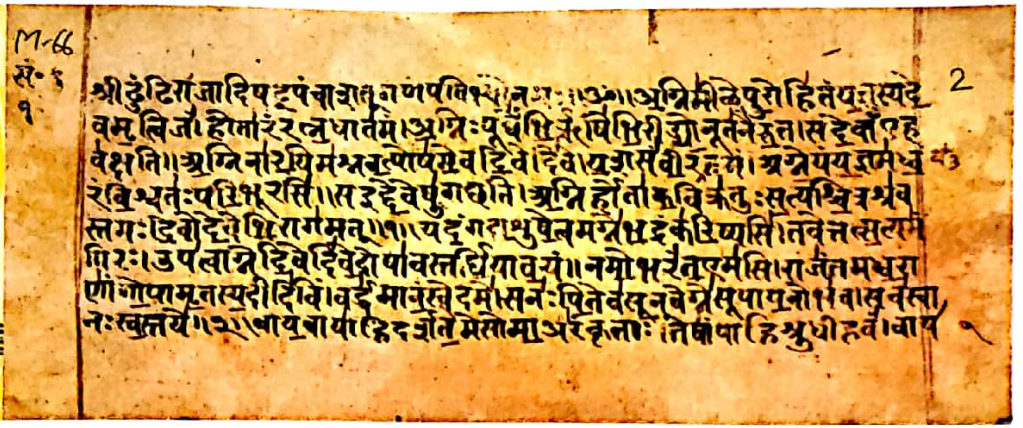 M-66
सं॰ १
१
2
श्रीढुंढिराजादिषट्पंचाशत् गणपतिभ्यो नमः ॥ॐ॥ अ॒ग्निमी॑ळे पु॒रोहि॑तं य॒ज्ञस्य॑ दे॒
वमृ॒त्विज॑म् । होता॑रं रत्न॒धात॑मम् । अ॒ग्निः पूर्वे॑भि॒रृषि॑भि॒रीड्यो॒ नूत॑नैरु॒त । स दे॒वाँ एह
व॑क्षति ॥ अ॒ग्निना॑ र॒यिम॑श्नव॒त्पोष॑मे॒व दि॒वेदि॑वे । य॒शसं॑ वी॒रव॑त्तमं । अग्ने॒ यं य॒ज्ञम॑ध्व॒
रं वि॒श्वतः॑ परि॒भूरसि॑ ॥ स इद्दे॒वेषु॑ गच्छति । अ॒ग्निर्होता॑ क॒विक्र॑तुः स॒त्यश्चि॒त्रश्र॑व
स्तमः । दे॒वो दे॒वेभि॒राग॑मत् ॥१॥ यद॒ङ्ग दा॒शुषे॒ त्वमग्ने॑ भ॒द्रं क॑रि॒ष्यसि॑ । तवेत्तत्स॒त्यमं॑
गिरः । उप॑ त्वाग्ने दि॒वेदि॑वे॒ दोषा॑वस्तर्धि॒या व॒यं ॥ नमो॒ भरं॑त॒ एम॑सि । राजं॑तमध्व॒रा
णां॑ गो॒पामृ॒तस्य॒ दीदि॑विं । वर्ध॑मानं॒ स्वे दमे॑ । स नः॑ पि॒तेव॑ सू॒नवेग्ने॑ सूपाय॒नो भ॑व । सच॑स्वा
नः स्व॒स्तये॑ ॥२॥ वाय॒वाया॑हि दर्शते॒मे सोमा॒ अरं॑कृताः । तेषां॑ पाहि श्रु॒धी हवं॑ । वाय
१